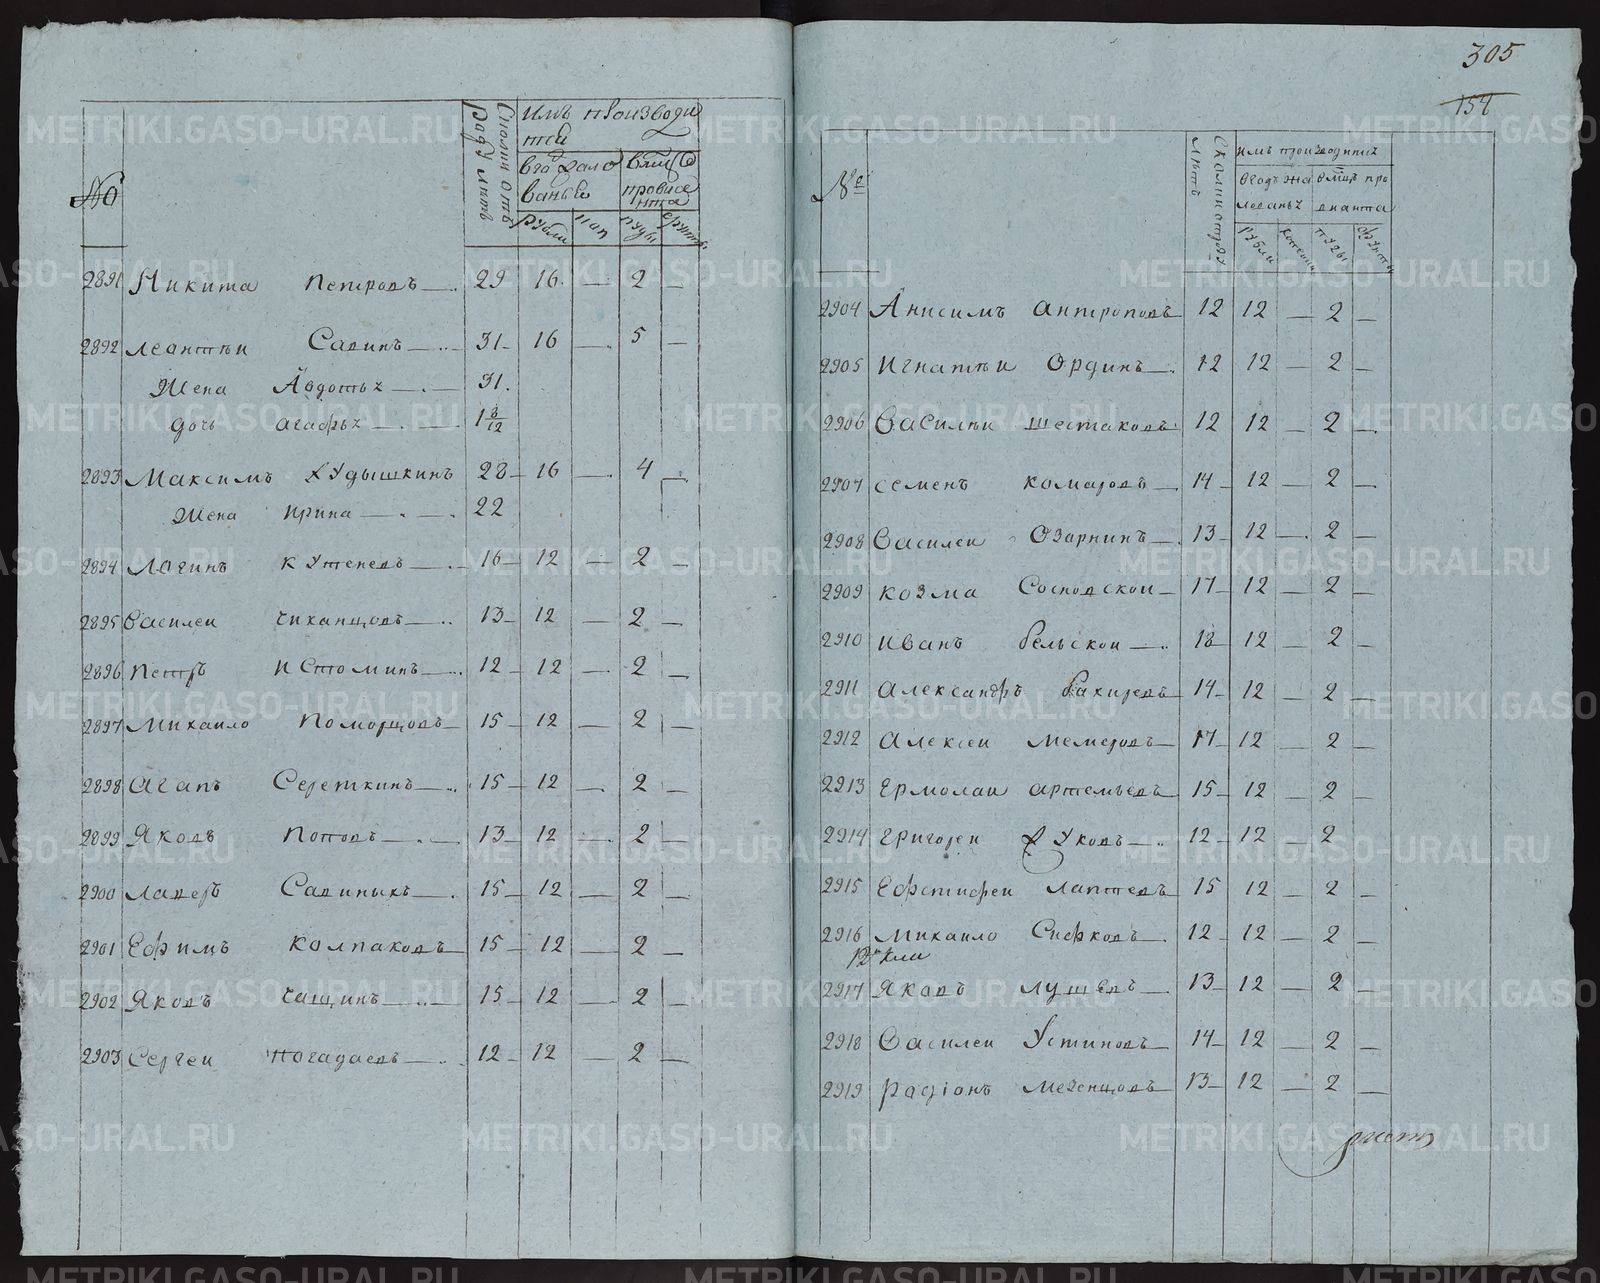 №
Сколки отъ роду летъ
Имъ производи
тся
в год жало
ванья
в мѣсяцъ
провиен
та
рубли коп пуды фунты
2891 Никита Петровъ 29 16 — 2 —
2892 Леонтѣи Савинъ 31 16 — 5 —
Жена Авдотья 31
дочь агафья 1 8/12
2893 Максимъ Худышкинъ 28 16 — 4 —
Жена ирина 22
2894 Логинъ кутеневъ 16 12 — 2 —
2895 Василеи чиканцовъ 13 12 — 2 —
2896 Петръ Истоминъ 12 12 — 2 —
2897 Михаило Поморцовъ 15 12 — 2 —
2898 Агапъ Сереткинъ 15 12 — 2 —
2899 Яковъ Поповъ 13 12 — 2 —
2900 Лаверъ Савиныхъ 15 12 — 2 —
2901 Ефимъ Колпаковъ 15 12 — 2 —
2902 Яковъ чащинъ 15 12 — 2 —
2903 Сергеи Погадаевъ 12 12 — 2 —
305
154
№
Сколки отроду летъ
имъ производитца
вгодъ жа
лованья
вмѣцъ про
вианта
рубли копеики пуды фунты
2904 Анисимъ антроповъ 12 12 — 2 —
2905 Игнатѣи Ординъ 12 12 — 2 —
2906 Василѣи шестаковъ 12 12 — 2 —
2907 семенъ комаровъ 14 12 — 2 —
2908 Василеи Озорнинъ 13 12 — 2 —
2909 козма Сосновскои 17 12 — 2 —
2910 Иванъ бельскои 18 12 — 2 —
2911 Александръ бакиревъ 14 12 — 2 —
2912 Алексеи мемеровъ 17 12 — 2 —
2913 Ермолаи артемьевъ 15 12 — 2 —
2914 Григореи Жуковъ 12 12 — 2
2915 Ефстифеи лаптевъ 15 12 — 2 —
2916 михаило Сифковъ 12 12 — 2 —
2917 Яковъ лушевъ 13 12 — 2 —
2918 Василеи Устиновъ 14 12 — 2 —
2919 Радіонъ мезенцовъ 13 12 — 2 —
METRIKI.GASO-URAL.RU